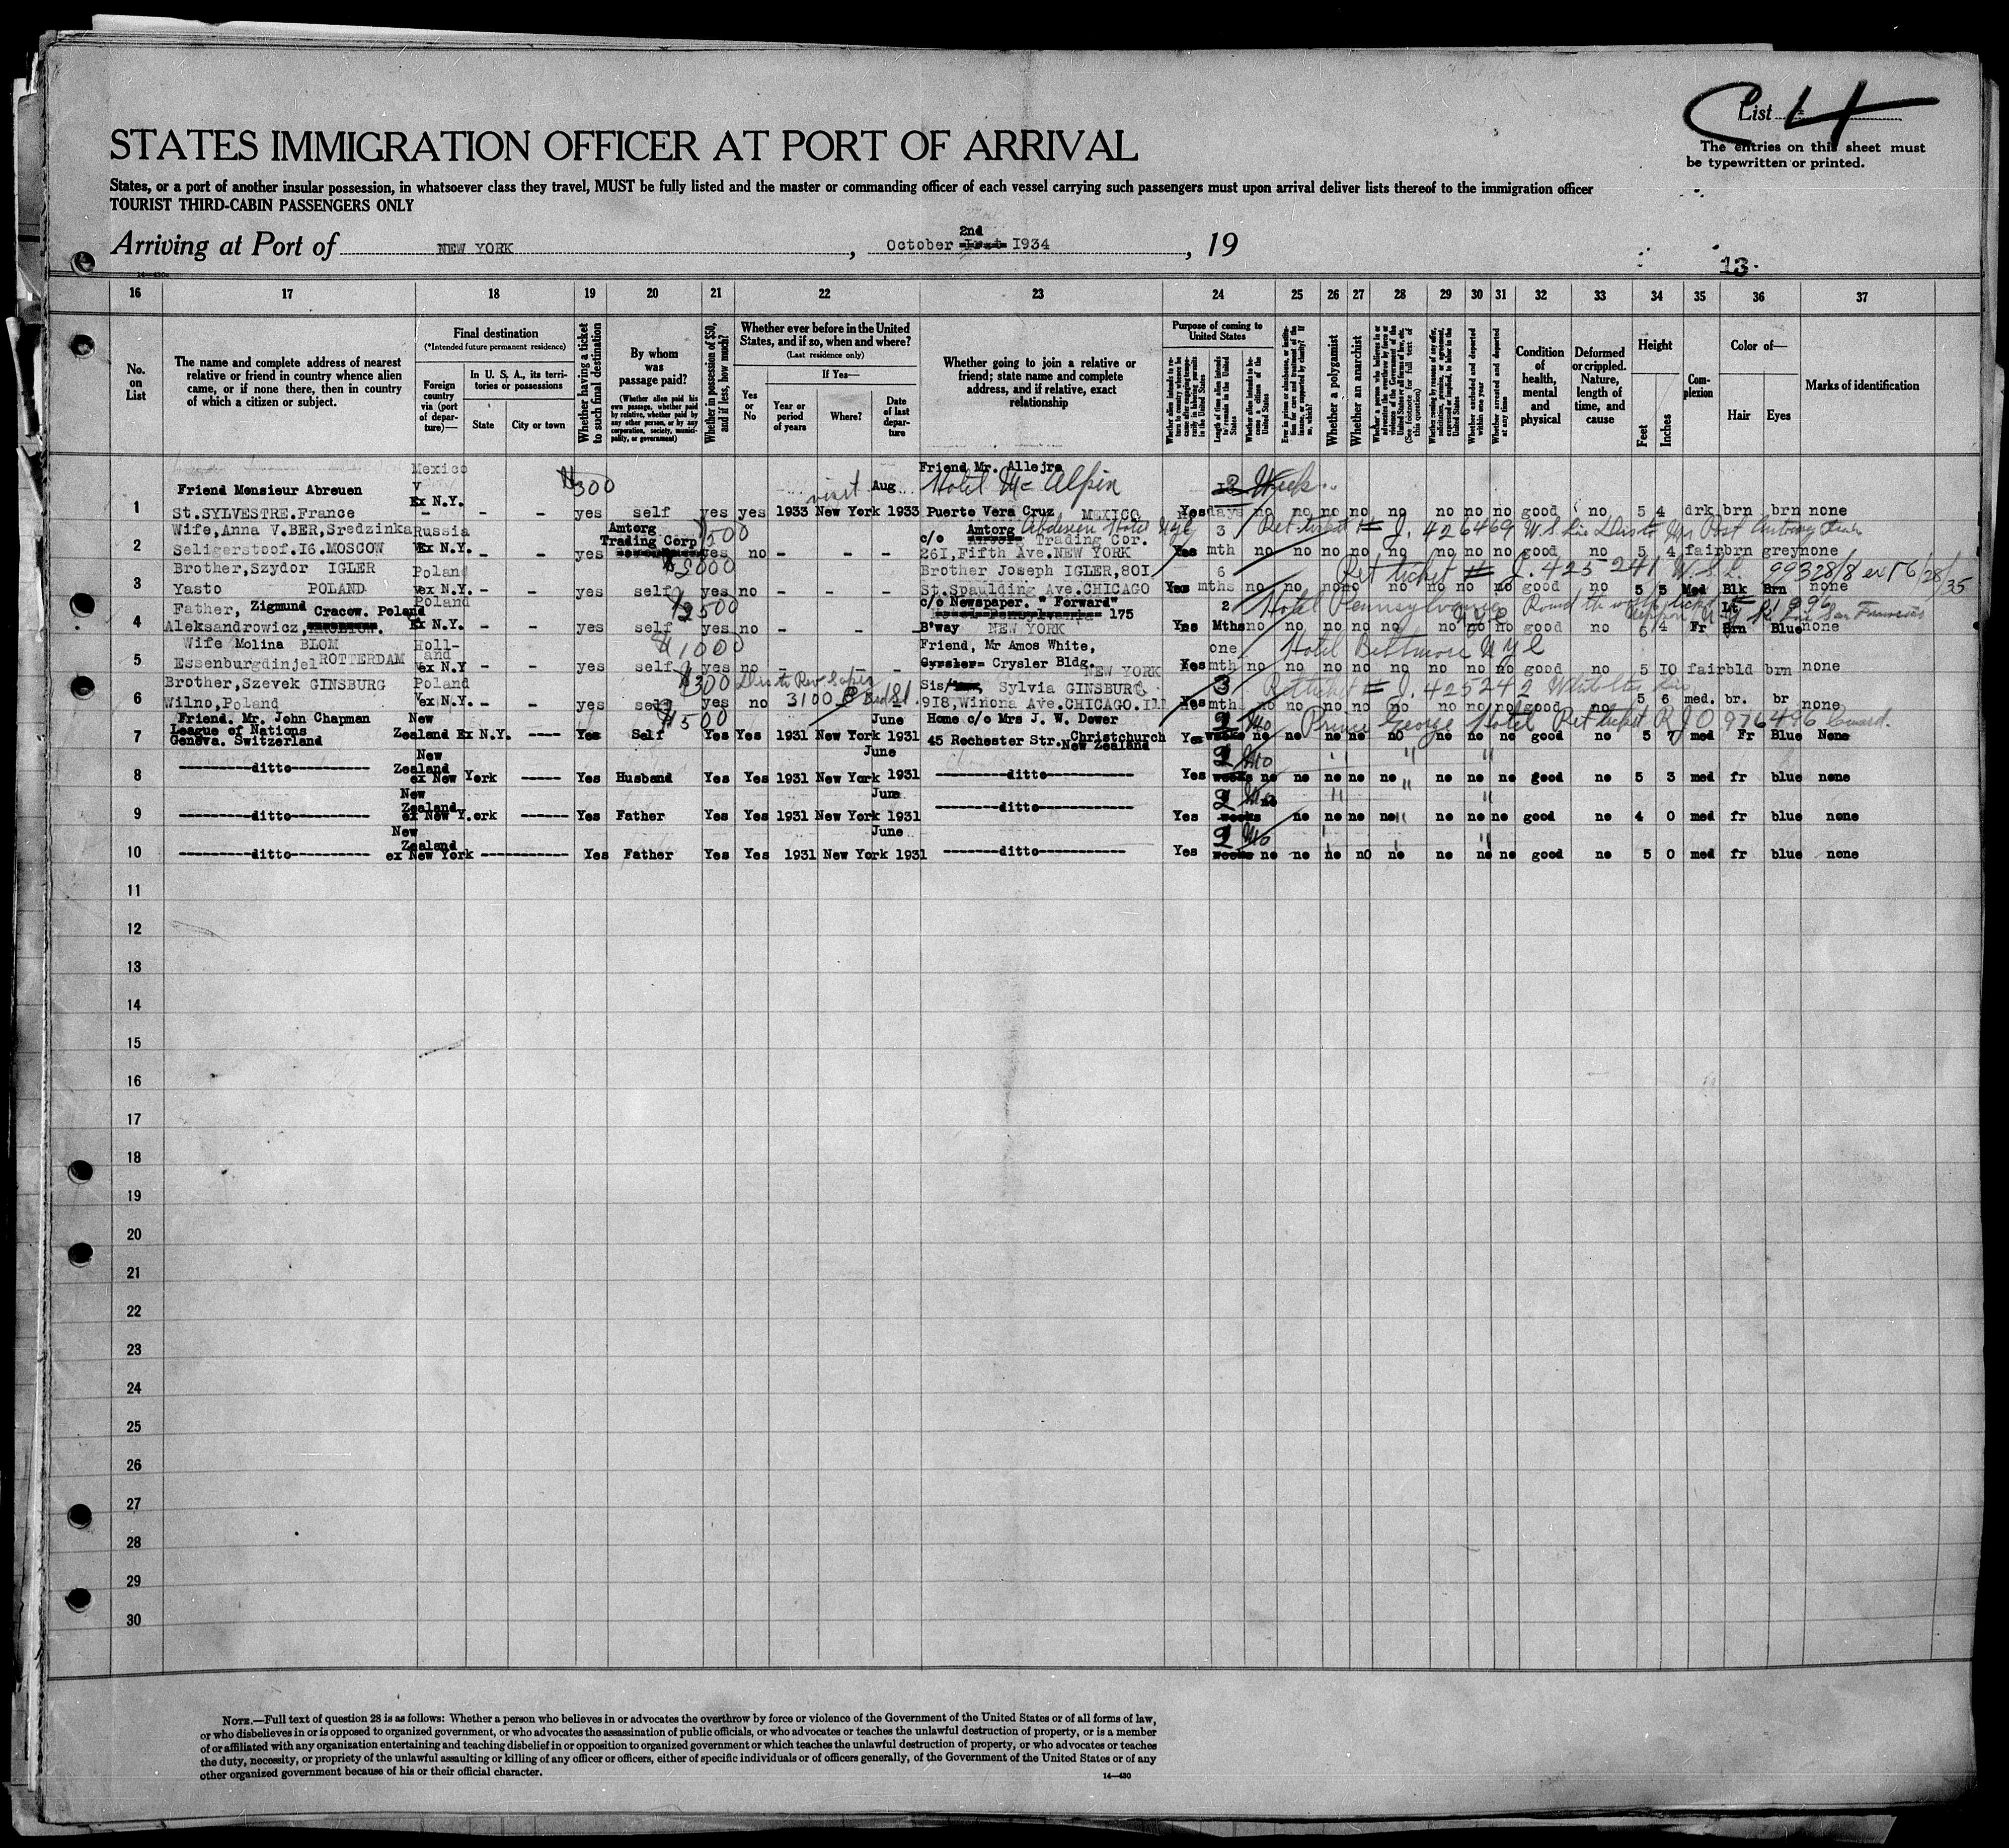 List 4
C
The entries on this sheet must
be typewritten or printed.
STATES IMMIGRATION OFFICER AT PORT OF ARRIVAL
States, or a port of another insular possession, in whatsoever class they travel, MUST be fully listed and the master or commanding officer of each vessel carrying such passengers must upon arrival deliver lists thereof to the immigration officer
TOURIST THIRD-CABIN PASSENGERS ONLY
Arriving at Port of NEW YORK, October 2nd 1934, 19
13.
16 17 18 19 20 21 22 23 24 25 26 27 28 29 30 31 32 33 34 35 36 37
No. on List
The name and complete address of nearest relative or friend in country whence alien came, or if none there, then in country of which a citizen or subject.
Final destination
(*Intended future permanent residence)
Foreign country via (port of departure)—
In U. S. A., its territories or possessions
State
City or town
Whether having a ticket to such final destination
By whom was passage paid?
(Whether alien paid his own passage, whether paid by relative, whether paid by any other person, or by any corporation, society, municipality, or government)
Whether in possession of $50, and if less, how much?
Whether ever before in the United States, and if so, when and where?
(Last residence only)
Yes or No
If Yes—
Year or period of years
Where?
Date of last departure
Whether going to join a relative or friend; state name and complete address, and if relative, exact relationship
Purpose of coming to United States
Length of time alien intends to remain in the United States
Whether alien intends to become a citizen of the United States
Whether a polygamist
Whether an anarchist
(See footnote for full text of this question)
Whether arrested and deported at any time
Condition of health, mental and physical
Deformed or crippled. Nature, length of time, and cause
Height
Feet
Inches
Complexion
Color of—
Hair
Eyes
Marks of identification
1 Friend Monsieur Abreuen Mexico V Ex N.Y. $300 visit Aug Friend Mr. Allejra Hotel Mc Alpin 2 Week
St.SYLVESTRE.France – – – yes self yes yes 1933 New York 1933 Puerto Vera Cruz MEXICO Yes days no no no no no no no no good no 5 4 drk brn brn none
2 Wife,Anna V.BER,Sredzinka Russia Amtorg Trading Corp $500 c/o Amtorg Trading Cor. Aberdeen Hotel NYC 3 Ret ticket # J. 426469 W.S. Line
Seligerstoof.16.MOSCOW Vex N.Y. – – yes yes no – – – 261,Fifth Ave.NEW YORK Yes mth no no no no no no no no good no 5 4 fair brn grey none
3 Brother,Szydor IGLER Poland $2000 Brother Joseph IGLER,801 6 Ret ticket # J. 425241 W.S.L. 99328/8 ex 6/28/35
Yasto POLAND vex N.Y. – – yes self yes no – – – St.Spaulding Ave.CHICAGO Yes mths no no no no no no no no good no 5 5 Med Blk Brn none
4 Father, Zigmund Cracow. Poland Poland $2500 c/o Newspaper. " Forward" 175 2 Hotel Pennsylvania NYC Round the world ticket San Francisco
Aleksandrowicz, Ex N.Y. – – yes self yes no – – – B'way NEW YORK Yes Mths no no no no no no no no good no 6 4 Fr Lt Brn Blue none
5 Wife Molina BLOM Holland $1000 Friend, Mr Amos White, one Hotel Biltmore NYC
Essenburgdinjel ROTTERDAM Vex N.Y – – yes self yes no – – – Crysler Bldg. NEW YORK Yes mth no no no no no no no no good no 5 10 fair bld brn none
6 Brother,Szevek GINSBURG Poland $300 Sis/ Sylvia GINSBURG 3 Ret ticket # J. 425242 White Star Line
Wilno,Poland Vex N.Y. – – yes self yes no 918,Winona Ave.CHICAGO.Ill Yes mth no no no no no no no no good no 5 6 med. br. br none
7 Friend. Mr. John Chapman League of Nations Geneva. Switzerland New Zealand Ex N.Y. ---- Yes Self $500 Yes Yes 1931 New York June 1931 Home c/o Mrs J. W. Dewer 45 Rochester Str. Christchurch New Zealand Yes 2 Mo Prince George Hotel Ret ticket RJO 976496 Cunard. no no no no no no no no good no 5 7 med Fr Blue None
8 ---ditto--- New Zealand ex New York ----- Yes Husband Yes Yes 1931 New York June 1931 ---ditto--- Yes 2 Mo no no no no no no no no good no 5 3 med fr blue none
9 ---ditto--- New Zealand ex New Y.ork ------ Yes Father Yes Yes 1931 New York June 1931 ---ditto--- Yes 2 Mo no no no no no no no no good no 4 0 med fr blue none
10 ---ditto--- New Zealand ex New York ------ Yes Father Yes Yes 1931 New York June 1931 ---ditto--- Yes 2 Mo no no no no no no no no good no 5 0 med fr blue none
11
12
13
14
15
16
17
18
19
20
21
22
23
24
25
26
27
28
29
30
NOTE.—Full text of question 28 is as follows: Whether a person who believes in or advocates the overthrow by force or violence of the Government of the United States or of all forms of law,
or who disbelieves in or is opposed to organized government, or who advocates the assassination of public officials, or who advocates or teaches the unlawful destruction of property, or is a member
of or affiliated with any organization entertaining and teaching disbelief in or opposition to organized government or which teaches the unlawful destruction of property, or who advocates or teaches
the duty, necessity, or propriety of the unlawful assaulting or killing of any officer or officers, either of specific individuals or of officers generally, of the Government of the United States or of any
other organized government because of his or their official character.
14—430